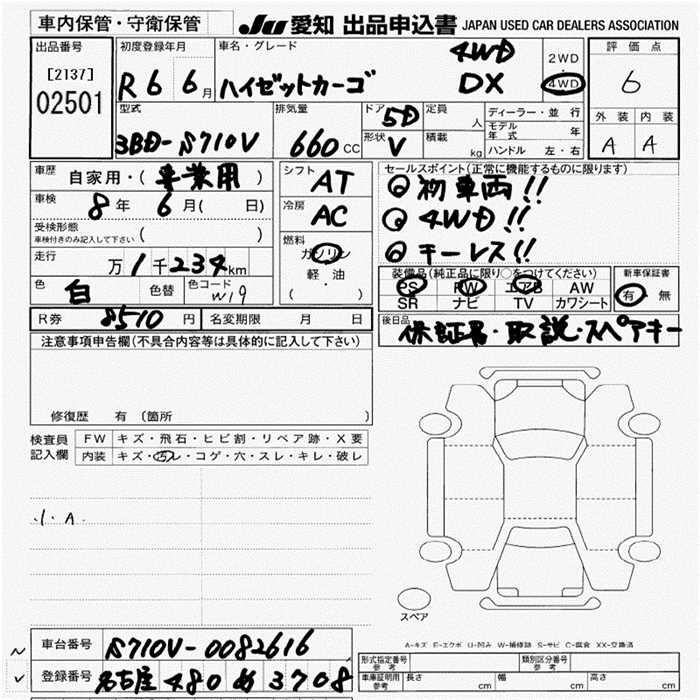 車内保管・守衛保管
JU 愛知 出品申込書 JAPAN USED CAR DEALERS ASSOCIATION
出品番号
[2137]
02501
初度登録年月
R6 6月
車名・グレード
ハイゼットカーゴ 4WD DX
2WD
・
4WD
評価点
6
外装 内装
A A
型式
3BD-S710V
排気量
660 CC
ドア
5D
形状
V
定員
人
積載
kg
ディーラー・並行
モデル年式 年
ハンドル 左・右
車歴
自家用・(事業用)
車検
8年 6月( 日)
受検形態
車検付きのみ記入して下さい ( )
走行
万1千234km
色
白
色替
色コード
W19
シフト
AT
冷房
AC
燃料
ガソリン
軽・油
( )
セールスポイント(正常に機能するものに限ります)
◎初車両!!
◎4WD!!
◎キーレス!!
装備品(純正品に限り○をつけてください)
PS PW エアB AW
SR ナビ TV カワシート
新車保証書
有・無
R券 8510円
名変期限 月 日
後日品
保証書・取説・スペアキー
注意事項申告欄(不具合内容等は具体的に記入して下さい)
修復歴 有(箇所
検査員記入欄
FW キズ・飛石・ヒビ割・リペア跡・X要
内装 キズ・汚レ・コゲ・穴・スレ・キレ・破レ
スペア
A=キズ E=エクボ U=凹み W=補修跡 S=サビ C=腐食 XX=交換済
車台番号 S710V-0082616
登録番号 名古屋 480 あ 3708
形式指定番号 参考
類別区分番号 参考
車庫証明用 参考 長さ cm 幅 cm 高さ cm